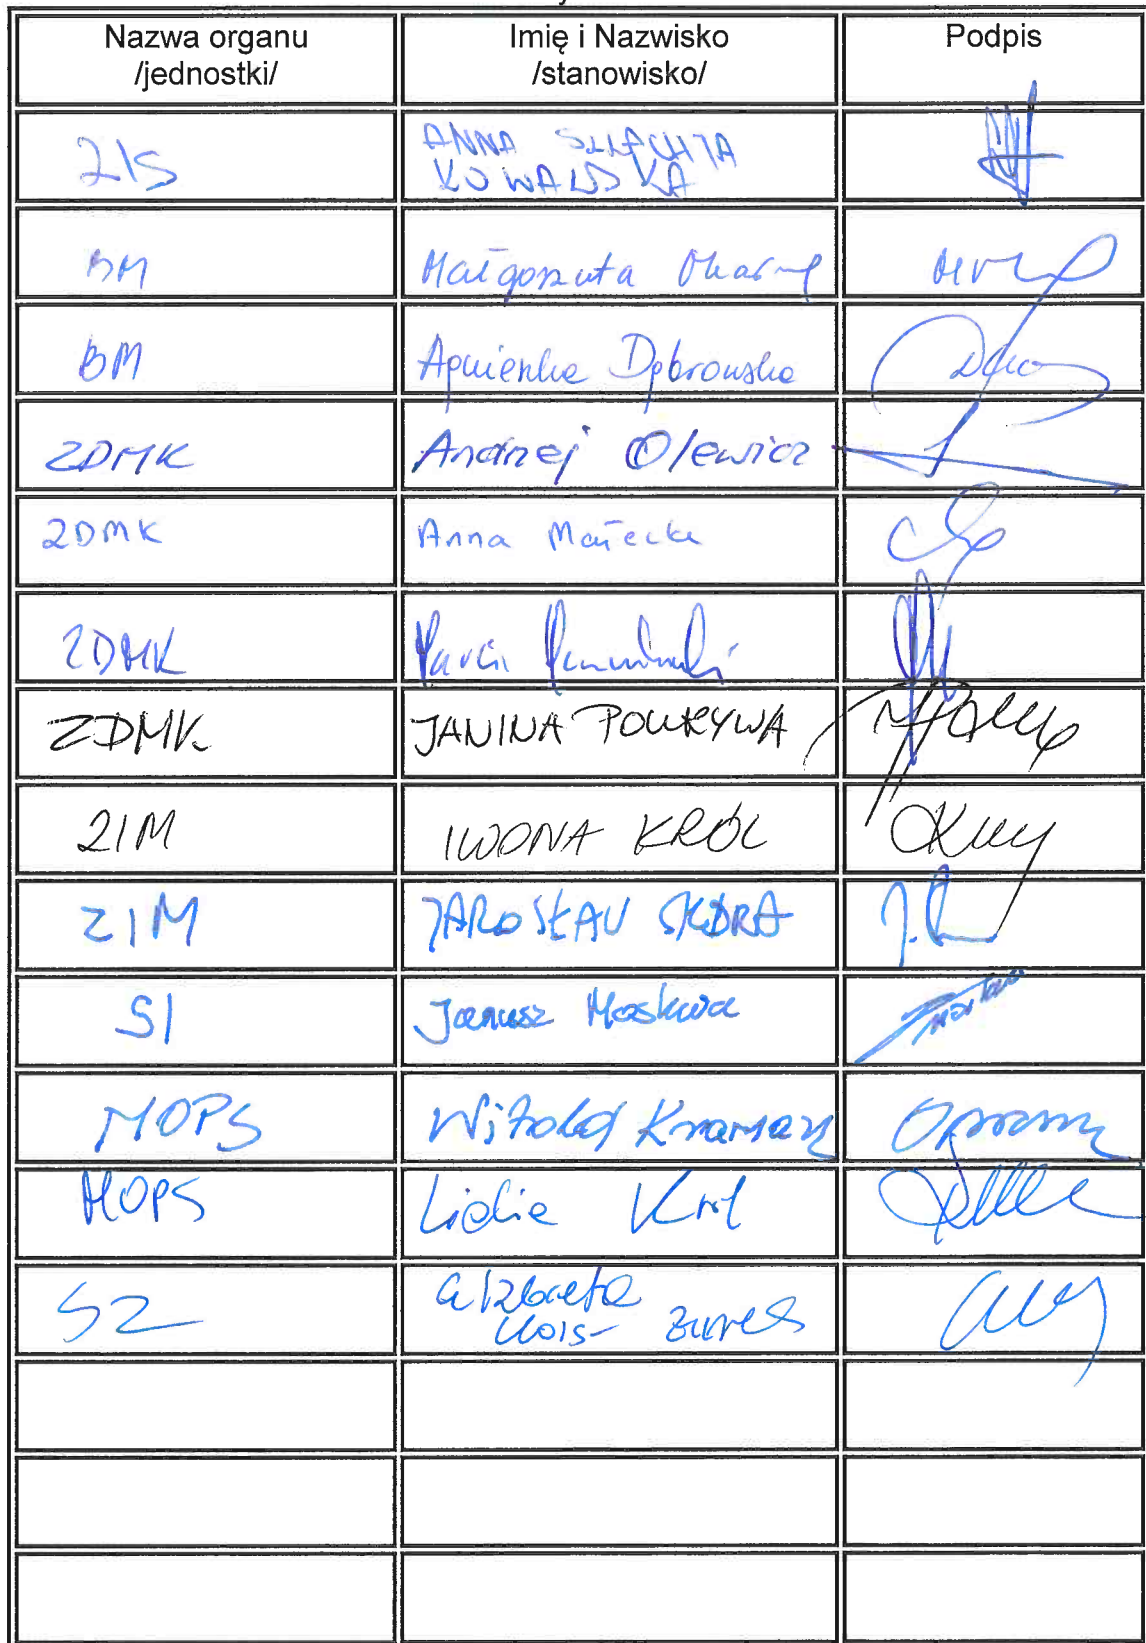 Nazwa organu
/jednostki/
Imię i Nazwisko
/stanowisko/
Podpis
ZIS
ANNA SZLACHTA
KOWALSKA
BM
Małgorzata
BM
Agnieszka Dąbrowska
ZDMK
Andrzej Olewicz
ZDMK
Anna Małecka
ZDMK
Marcin
ZDMK
JANINA POKRYWA
ZIM
IWONA KRÓL
ZIM
JAROSŁAW SKÓRA
SI
Janusz Moskwa
MOPS
Witold Kramarz
MOPS
Lidia Król
SZ
Elżbieta